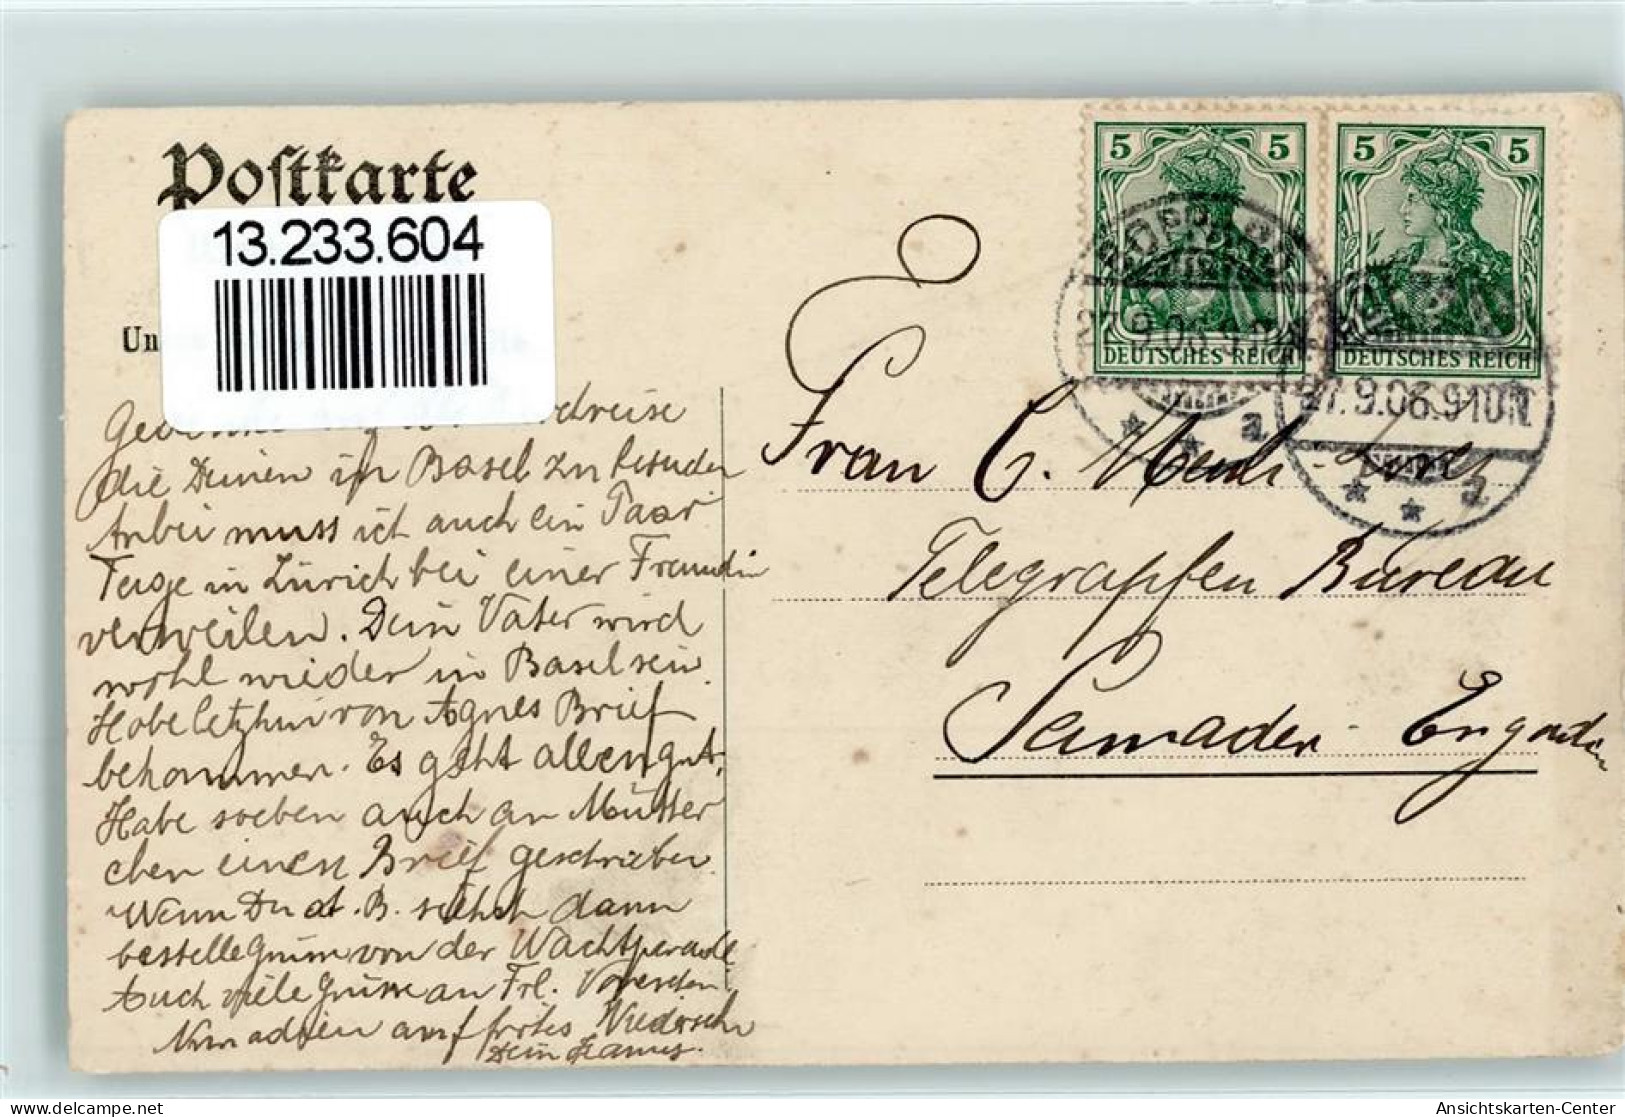 Postkarte
13.233.604
Un
5 5
5 5
DEUTSCHES REICH
DEUTSCHES REICH
27.9.06.9
27.9.06.910N.
* * a
* * a
Frau C.
Telegraphen Bureau
Samaden Engadin
die Deinen in Basel zu
muss ich auch ein Paar
Tage in Zürich bei einer Freundin
verweilen. Dein Vater wird
wohl wieder in Basel sein.
Habe letzhin von Agnes Brief
bekommen. Es geht allen gut.
Habe soeben auch an Mütter
chen einen Brief geschrieben.
Wenn Du Hr. B. siehst dann
bestelle Grüsse von der Wachtparade
Auch viele Grüsse an Frl.
Nun adieu auf frohes Wiedersehn
Dein
Ansichtskarten-Center